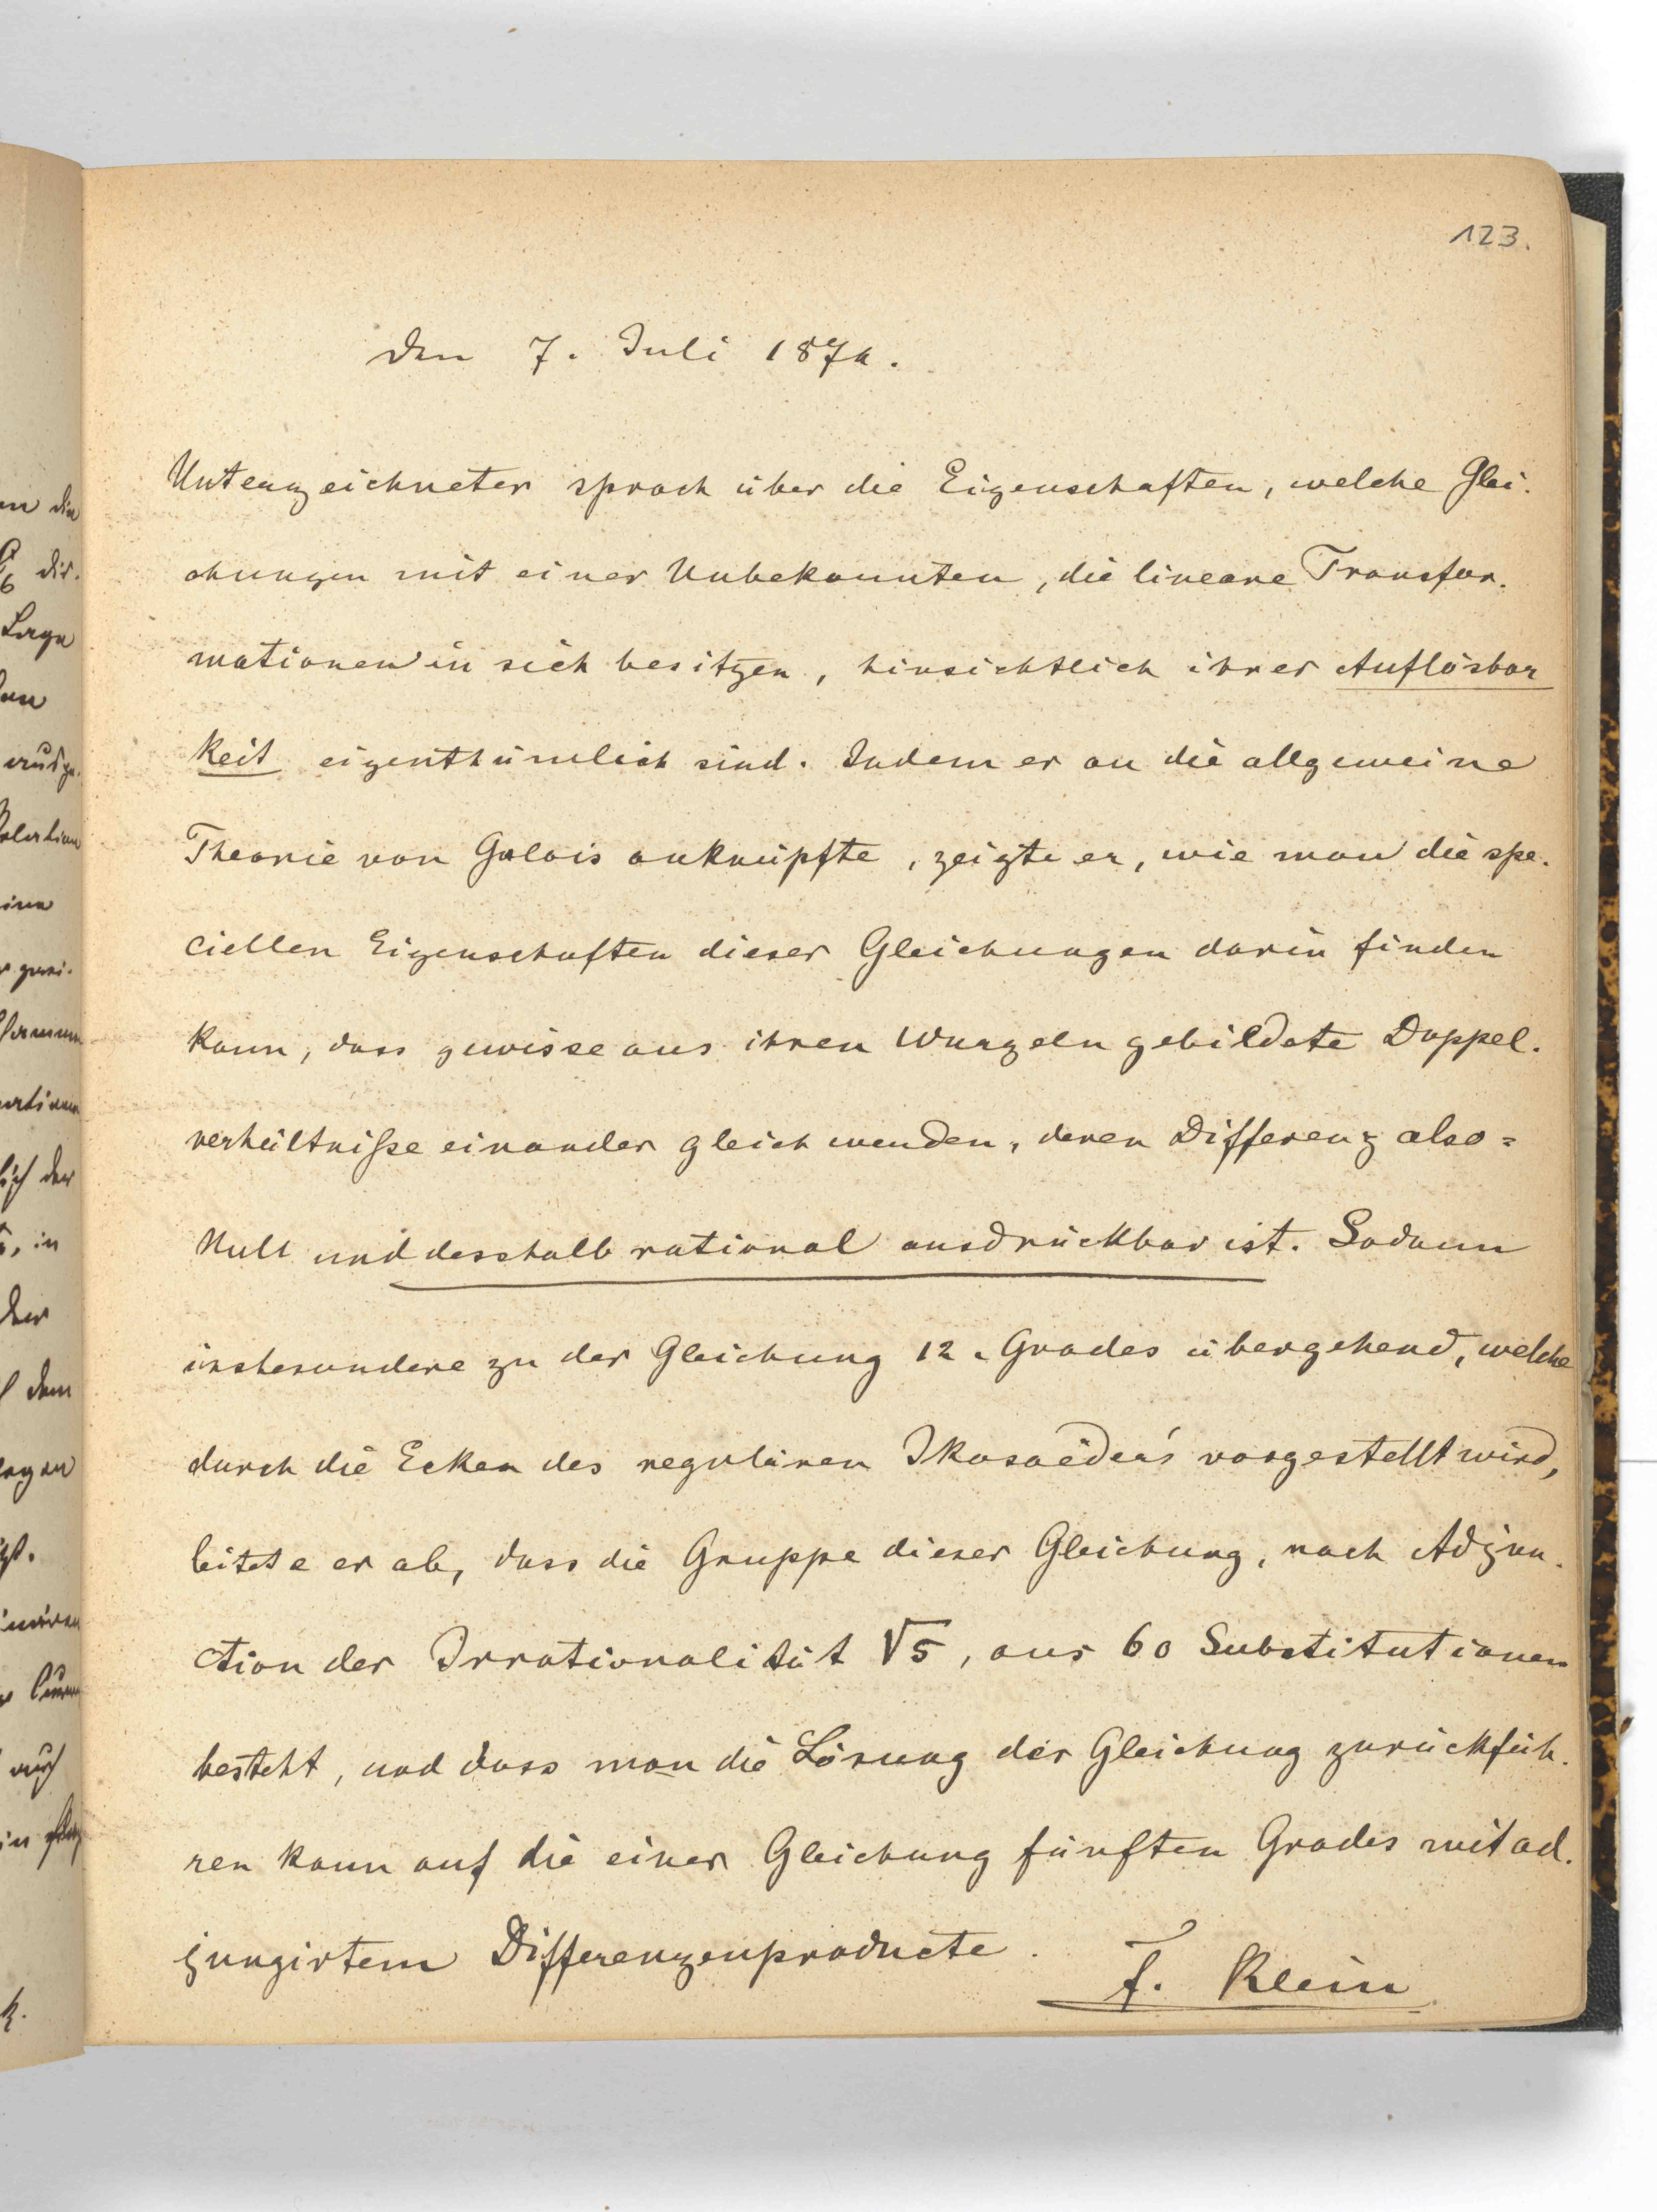 123.
den 7. Juli 187
Unterzeichneter sprach über die Eigenschaften, welche Glei-
chungen mit einer Unbekannten, die lineare Transfor-
mationen in sich besitzen, hinsichtlich ihrer Auflösbar
keit eigenthümlich sind. Indem er an die allgemeine
Theorie von Galois anknüpfte, zeigte er, wie man die spe-
ciellen Eigenschaften dieser Gleichungen darin finden
kann, dass gewisse aus ihren Wurzeln gebildete Doppel-
verhältniße einander gleich werden, deren Differenz also =
Null und desshalb rational ausdrückbar ist. Sodann
insbesondere zu der Gleichung 12. Grades übergehend, welche
durch die Ecken des regulären Ikosaëder's vorgestellt wird,
leitete er ab, dass die Gruppe dieser Gleichung, nach Adjun-
ction der Irrationalität √5, aus 60 Substitutionen
besteht, und dass man die Lösung der Gleichung zurückfüh-
ren kann auf die einer Gleichung fünften Grades mit ad-
jungirtem Differenzenproducte.
F. Klein